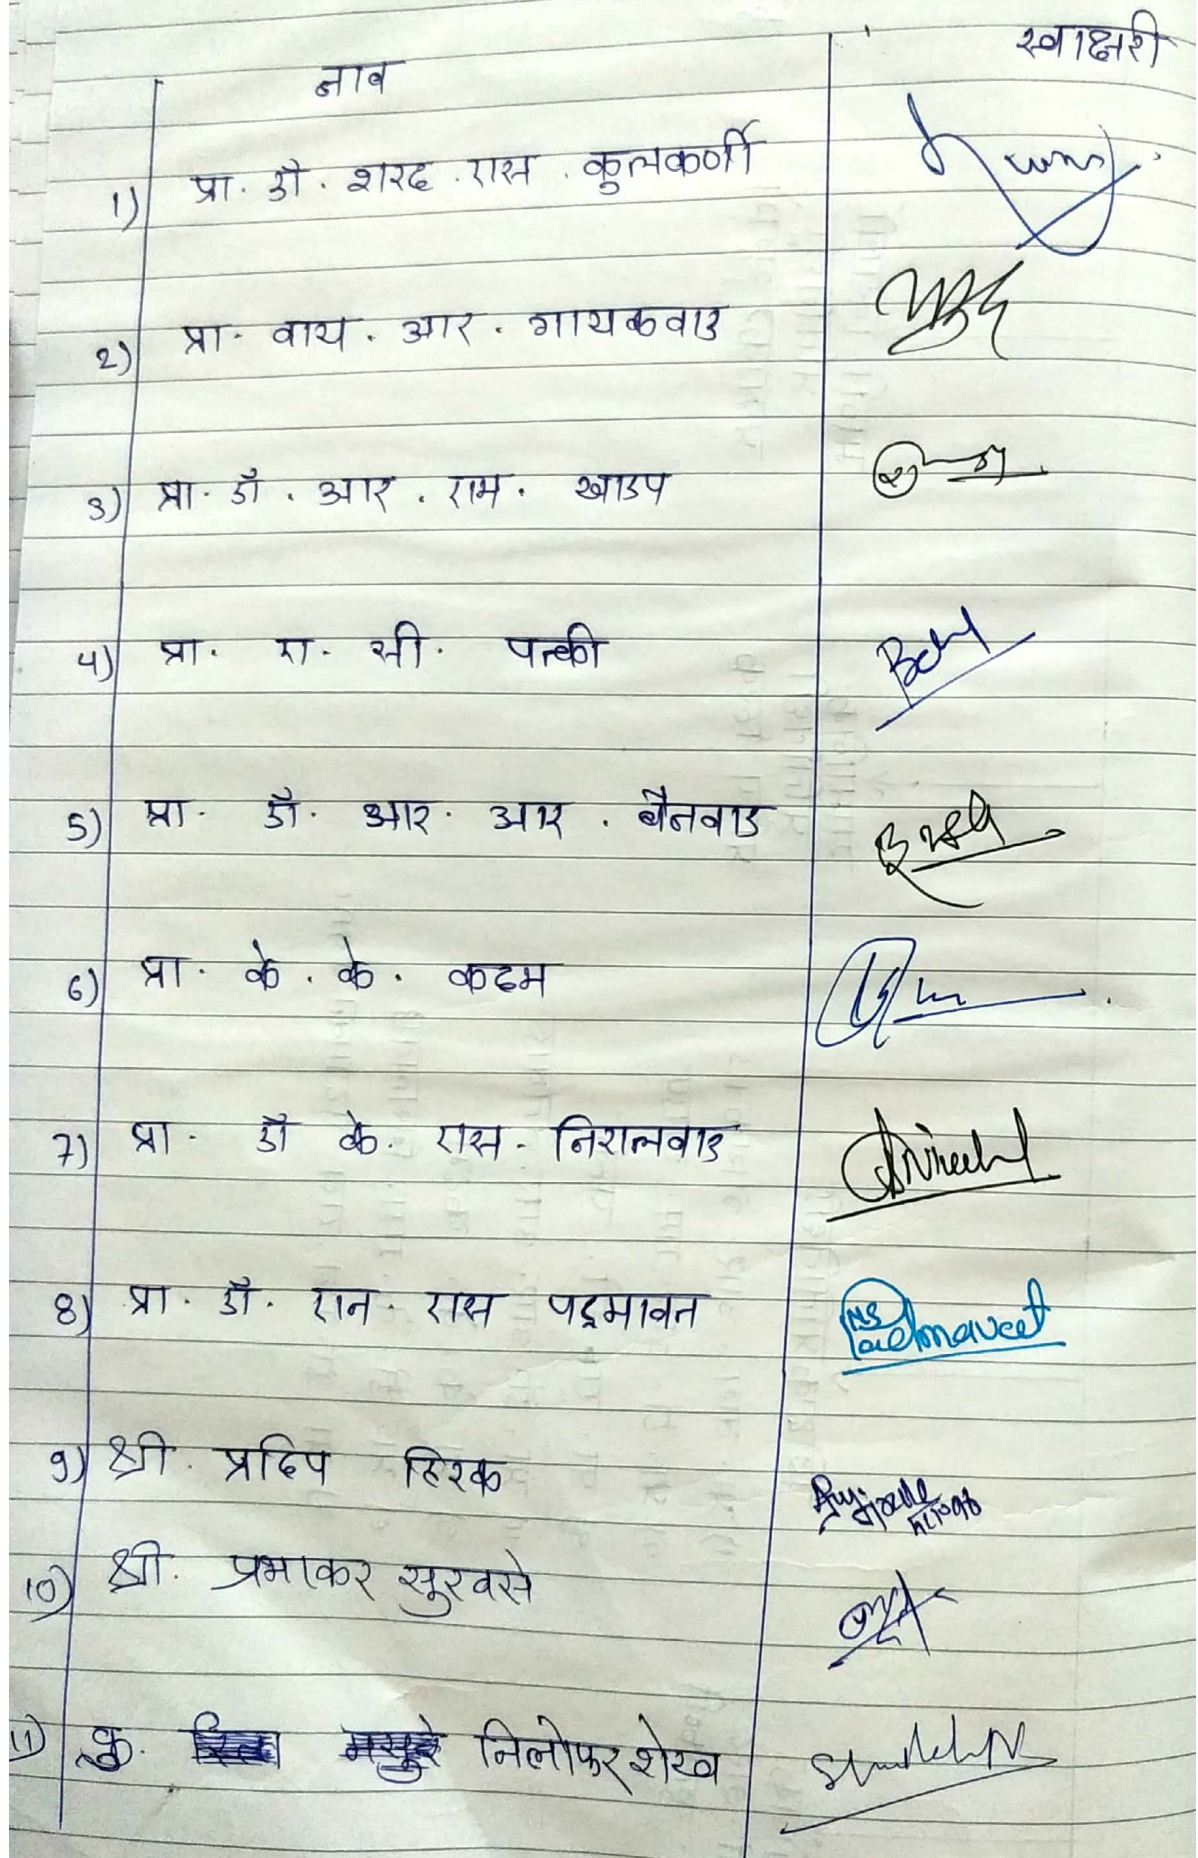 नाव स्वाक्षरी
1) प्रा. डॉ. शरद. एस. कुलकर्णी
2) प्रा. वाय. आर. गायकवाड
3) प्रा. डॉ. आर. एम. खाडप
4) प्रा. ए. सी. पत्की
5) प्रा. डॉ. आर. आर. बैनवाड
6) प्रा. के. के. कदम
7) प्रा. डॉ के. एस. निरालवाड
8) प्रा. डॉ. एन. एस पद्मावत
9) श्री. प्रदिप हिरक
10) श्री. प्रभाकर सुरवसे
11) कु. निलोफर शेख